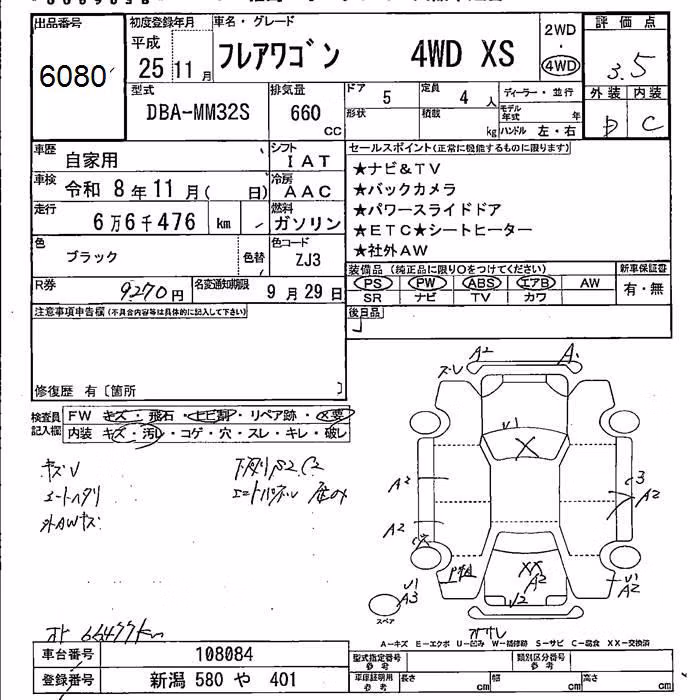 出品番号
6080
初度登録年月
平成
25 11月
車名・グレード
フレアワゴン 4WD XS
2WD
・
4WD
評価点
3.5
外装 内装
D C
型式
DBA-MM32S
排気量
660
CC
ドア
5
定員
4 人
ディーラー・並行
形状
積載
kg
モデル年式 年
ハンドル 左・右
車歴
自家用
シフト
IAT
車検
令和 8年11月( 日)
冷房
AAC
走行
6万6千476 km
燃料
ガソリン
色
ブラック
色替
色コード
ZJ3
R券
9270円
名変通知期限
9月29日
セールスポイント(正常に機能するものに限ります)
★ナビ&TV
★バックカメラ
★パワースライドドア
★ETC★シートヒーター
★社外AW
装備品(純正品に限り○をつけてください)
PS PW ABS エアB AW
SR ナビ TV カワ
新車保証書
有・無
後日品
注意事項申告欄(不具合内容等は具体的に記入して下さい)
修復歴 有〔箇所 〕
検査員記入欄
FW キズ・飛石・ヒビ割・リペア跡・X要
内装 キズ・汚レ・コゲ・穴・スレ・キレ・破レ
キズU
シートヘタリ
外AWキズ
下廻りS2.C2
A2
A
キズU
U1
X
A2
A2
3
A2
XX
A2
U2
U1
A2
U1
A3
スペア
オト 66477km
A-キズ E-エクボ U-凹み W-補修跡 S-サビ C-腐食 XX-交換済
車台番号
108084
登録番号
新潟 580 や 401
型式指定番号
参考
類別区分番号
参考
車庫証明用
参考
長さ cm
幅 cm
高さ cm